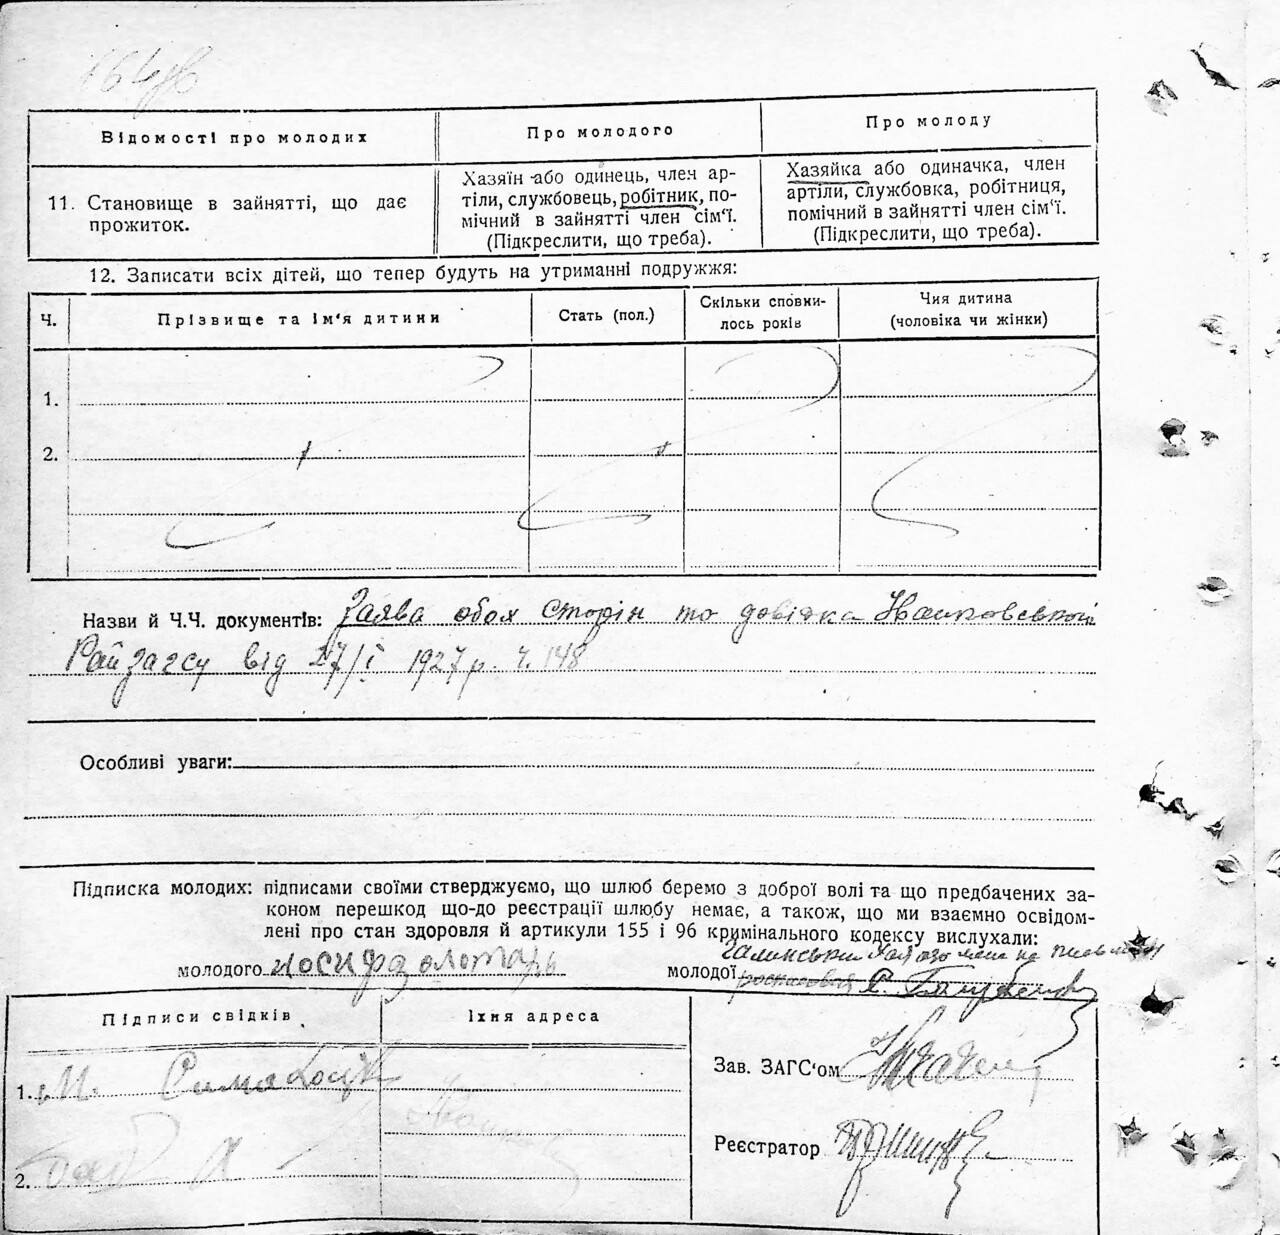 Відомості про молодих
Про молодого
Про молоду
11. Становище в зайнятті, що дає
прожиток.
Хазяїн або одинець, член ар-
тіли, службовець, робітник, по-
мічний в зайнятті член сім'ї.
(Підкреслити, що треба).
Хазяйка або одиначка, член
артіли, службовка, робітниця,
помічний в зайнятті член сім'ї.
(Підкреслити, що треба).
12. Записати всіх дітей, що тепер будуть на утриманні подружжя:
Ч.
Прізвище та ім'я дитини
Стать (пол.)
Скільки сповни-
лось років
Чия дитина
(чоловіка чи жінки)
1.
2.
Назви й Ч.Ч. документів: Заява обох сторін то довідка
Райзагсу від 27/I 1927 р. ч. 148
Особливі уваги:
Підписка молодих: підписами своїми стверджуємо, що шлюб беремо з доброї волі та що предбачених за-
коном перешкод що-до реєстрації шлюбу немає, а також, що ми взаємно освідом-
лені про стан здоровля й артикули 155 і 96 кримінального кодексу вислухали:
молодого иосиф золотарь
молодої
Підписи свідків
Їхня адреса
1. М.
2.
Зав. ЗАГС'ом
Реєстратор